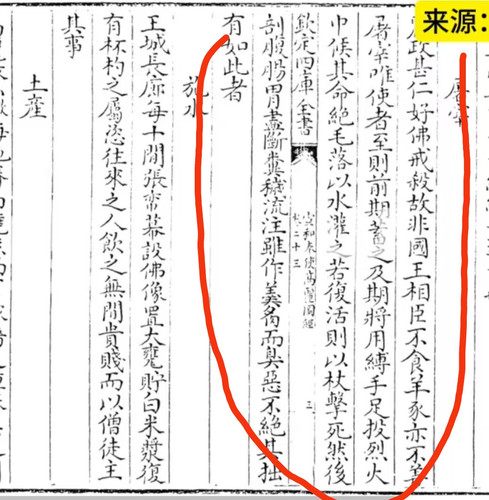 来源：
屠宰
政甚仁好佛戒殺故非國王相臣不食羊豕亦不善
屠宰唯使者至則前期蓄之及期將用縛手足投烈火
中候其命絕毛落以水灌之若復活則以杖擊死然後
欽定四庫全書
宣和奉使高麗圖經
卷二十三
三
剖腹腸胃盡斷糞穢流注雖作羹胾而臭惡不絕其拙
有如此者
施水
王城長廊每十間張帟幕設佛像置大甕貯白米漿復
有杯杓之屬恣往來之人飲之無間貴賤而以僧徒主
其事
土産